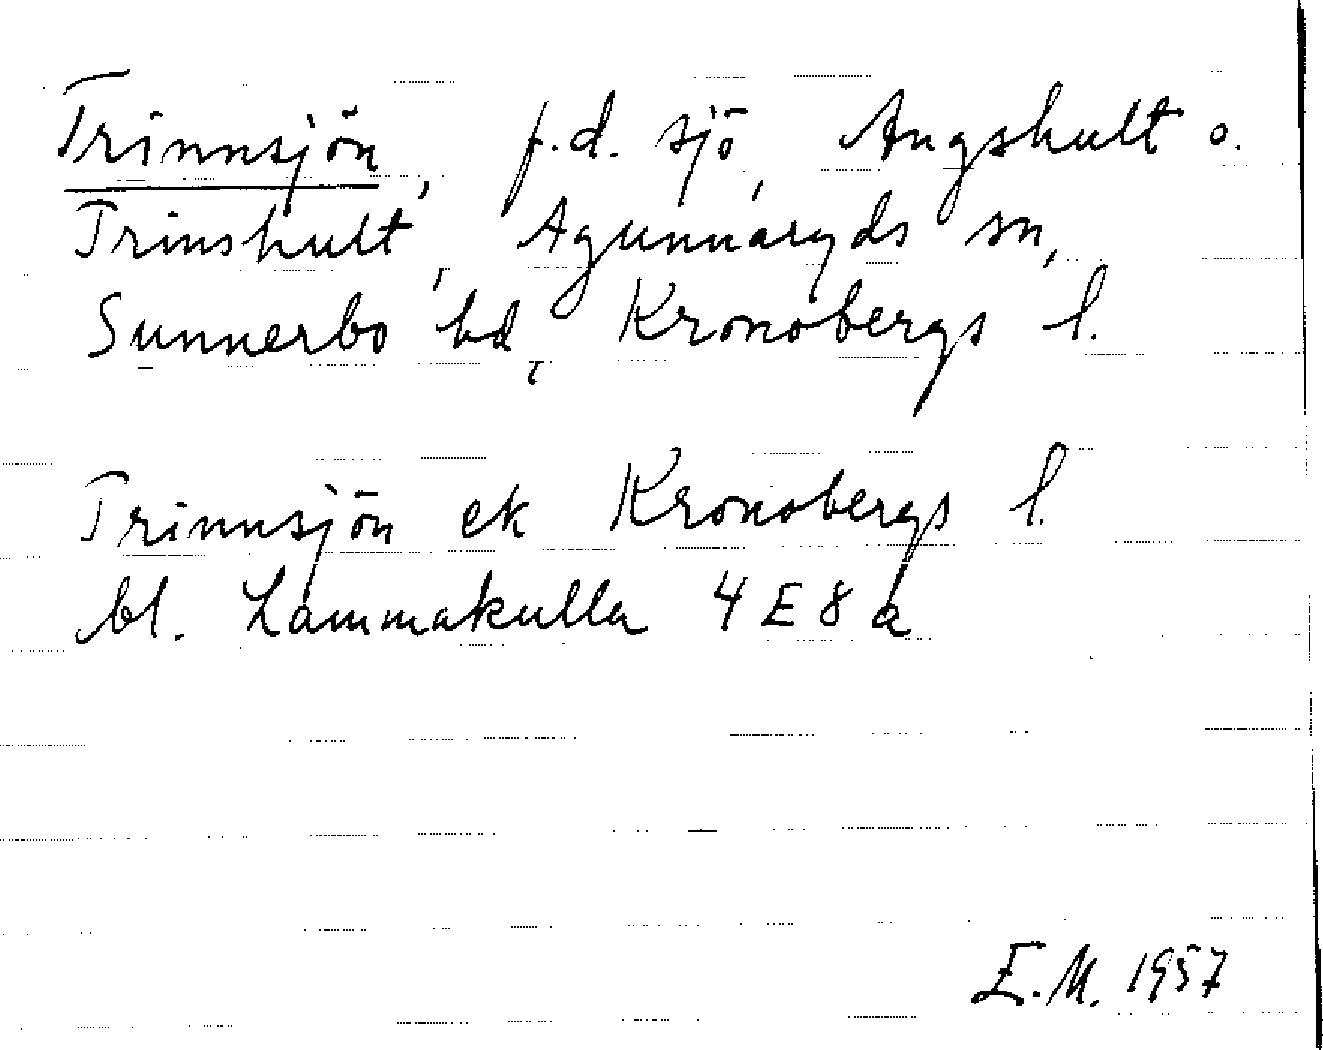 Trinnsjön, f.d. sjö, Angshult o.
Trinshult, Agunnaryds sn,
Sunnerbo hd, Kronobergs l.
Trinnsjön ek Kronobergs l.
bl. Lammakulla 4 E 8 a
E.M. 1957